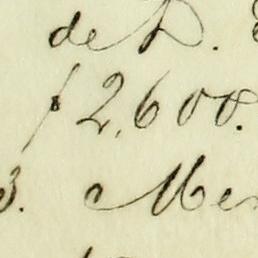 de D.
f 2,600.
3. Me